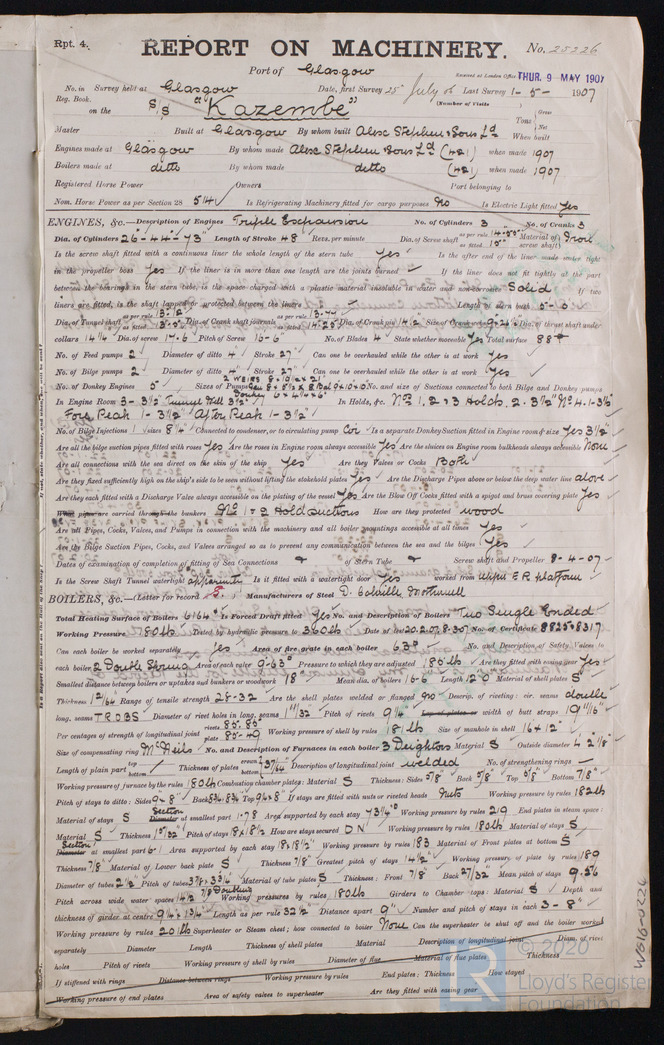 Rpt. 4.
REPORT ON MACHINERY. No. 25226
Port of Glasgow
Received at London Office THUR. 9 MAY 1907
No. in Survey held at Glasgow Date, first Survey 25th July 06 Last Survey 1-5- 1907
Reg. Book. (Number of Visits
on the S/S "Kazembe" Tons Gross Net
Master Built at Glasgow By whom built Alex Stephen & Sons Ld When built
Engines made at Glasgow By whom made Alex Stephen & Sons Ld (421) when made 1907
Boilers made at ditto By whom made ditto (421) when made 1907
Registered Horse Power Owners Port belonging to
Nom. Horse Power as per Section 28 514 Is Refrigerating Machinery fitted for cargo purposes No Is Electric Light fitted Yes
ENGINES, &c.—Description of Engines Triple Expansion No. of Cylinders 3 No. of Cranks 3
Dia. of Cylinders 26"-44"-73" Length of Stroke 48 Revs. per minute Dia. of Screw shaft as per rule as fitted Material of screw shaft Iron
Is the screw shaft fitted with a continuous liner the whole length of the stern tube Yes Is the after end of the liner made water tight
in the propeller boss Yes If the liner is in more than one length are the joints burned If the liner does not fit tightly at the part
between the bearings in the stern tube, is the space charged with a plastic material insoluble in water and non-corrosive Solid If two
liners are fitted, is the shaft lapped or protected between the liners Length of stern bush 5-6
Dia. of Tunnel shaft as per rule as fitted Dia. of Crank shaft journals as per rule as fitted Dia. of Crank pin 14 1/2 Size of Crank webs Dia. of thrust shaft under
collars 14 1/4 Dia. of screw 17-6 Pitch of Screw 16-6 No. of Blades 4 State whether moveable Yes Total surface 88
No. of Feed pumps 2 Diameter of ditto 4 Stroke 27" Can one be overhauled while the other is at work Yes
No. of Bilge pumps 2 Diameter of ditto 4 Stroke 27" Can one be overhauled while the other is at work Yes
No. of Donkey Engines 5 Sizes of Pumps No. and size of Suctions connected to both Bilge and Donkey pumps
In Engine Room 3-3 1/2" Tunnel Well 3 1/2" In Holds, &c. Nos 1, 2 & 3 Holds, 2-3 1/2" No 4-1-3 1/2"
Fore Peak 1-3 1/2" After Peak 1-3 1/2"
No. of Bilge Injections 1 sizes 8 1/4 Connected to condenser, or to circulating pump Cir Is a separate Donkey Suction fitted in Engine room & size Yes 3 1/2"
Are all the bilge suction pipes fitted with roses Yes Are the roses in Engine room always accessible Yes Are the sluices on Engine room bulkheads always accessible None
Are all connections with the sea direct on the skin of the ship Yes Are they Valves or Cocks Both
Are they fixed sufficiently high on the ship's side to be seen without lifting the stokehold plates Yes Are the Discharge Pipes above or below the deep water line above
Are they each fitted with a Discharge Valve always accessible on the plating of the vessel Yes Are the Blow Off Cocks fitted with a spigot and brass covering plate Yes
What pipes are carried through the bunkers No 1 & 2 Hold suctions How are they protected wood
Are all Pipes, Cocks, Valves, and Pumps in connection with the machinery and all boiler mountings accessible at all times Yes
Are the Bilge Suction Pipes, Cocks, and Valves arranged so as to prevent any communication between the sea and the bilges Yes
Dates of examination of completion of fitting of Sea Connections of Stern Tube Screw shaft and Propeller 8-4-07
Is the Screw Shaft Tunnel watertight apparently Is it fitted with a watertight door Yes worked from upper E R platform
BOILERS, &c.—(Letter for record S) Manufacturers of Steel D. Colville Motherwell
Total Heating Surface of Boilers 6164 Is Forced Draft fitted Yes No. and Description of Boilers Two Single Ended
Working Pressure 180 lb Tested by hydraulic pressure to 360 lb Date of test No. of Certificate 8825 & 8317
Can each boiler be worked separately Yes Area of fire grate in each boiler 63 No. and Description of Safety Valves to
each boiler 2 Double Spring Area of each valve 9.63 Pressure to which they are adjusted 185 lb Are they fitted with easing gear Yes
Smallest distance between boilers or uptakes and bunkers or woodwork 18 Mean dia. of boilers 16-6 Length 12-0 Material of shell plates S
Thickness Range of tensile strength 28-32 Are the shell plates welded or flanged No Descrip. of riveting: cir. seams double
long. seams T.R.D.B.S Diameter of rivet holes in long. seams 1 11/32" Pitch of rivets 9 1/4 Lap of plates or width of butt straps 19 11/16"
Per centages of strength of longitudinal joint rivets 85.85 plate 85.49 Working pressure of shell by rules 181 lb Size of manhole in shell 16 x 12
Size of compensating ring McNeils No. and Description of Furnaces in each boiler 3 Deightons Material S Outside diameter 4' 2 1/8"
Length of plain part top bottom Thickness of plates crown bottom 37/64 Description of longitudinal joint welded No. of strengthening rings
Working pressure of furnace by the rules 180 lb Combustion chamber plates: Material S Thickness: Sides 5/8 Back 5/8 Top 5/8 Bottom 7/8
Pitch of stays to ditto: Sides 9 x 8 Back Top If stays are fitted with nuts or riveted heads Nuts Working pressure by rules 182 lb
Material of stays S Section Diameter at smallest part 1.78 Area supported by each stay 73 1/4 Working pressure by rules 219 End plates in steam space:
Material S Thickness 1 5/32 Pitch of stays 18 x 18 1/2 How are stays secured D N Working pressure by rules 180 lb Material of stays S
Section Diameter at smallest part 6.1 Area supported by each stay 18 x 18 1/2 Working pressure by rules 183 Material of Front plates at bottom S
Thickness 7/8 Material of Lower back plate S Thickness 7/8 Greatest pitch of stays 14 1/2 Working pressure of plate by rules 189
Diameter of tubes 2 1/2 Pitch of tubes Material of tube plates S Thickness: Front 7/8 Back 27/32 Mean pitch of stays 9.26
Pitch across wide water spaces 14 1/2 7/8 Doubling Working pressures by rules 180 lb Girders to Chamber tops: Material S Depth and
thickness of girder at centre 9 1/4 x 1 3/4 Length as per rule 32 1/2 Distance apart 9" Number and pitch of stays in each 3-8"
Working pressure by rules 201 lb Superheater or Steam chest; how connected to boiler None Can the superheater be shut off and the boiler worked
separately Diameter Length Thickness of shell plates Material Description of longitudinal joint Diam. of rivet
holes Pitch of rivets Working pressure of shell by rules Diameter of flue Material of flue plates Thickness
If stiffened with rings Distance between rings Working pressure by rules End plates: Thickness How stayed
Working pressure of end plates Area of safety valves to superheater Are they fitted with easing gear
© 2020
Lloyd's Register
Foundation
W616-0226